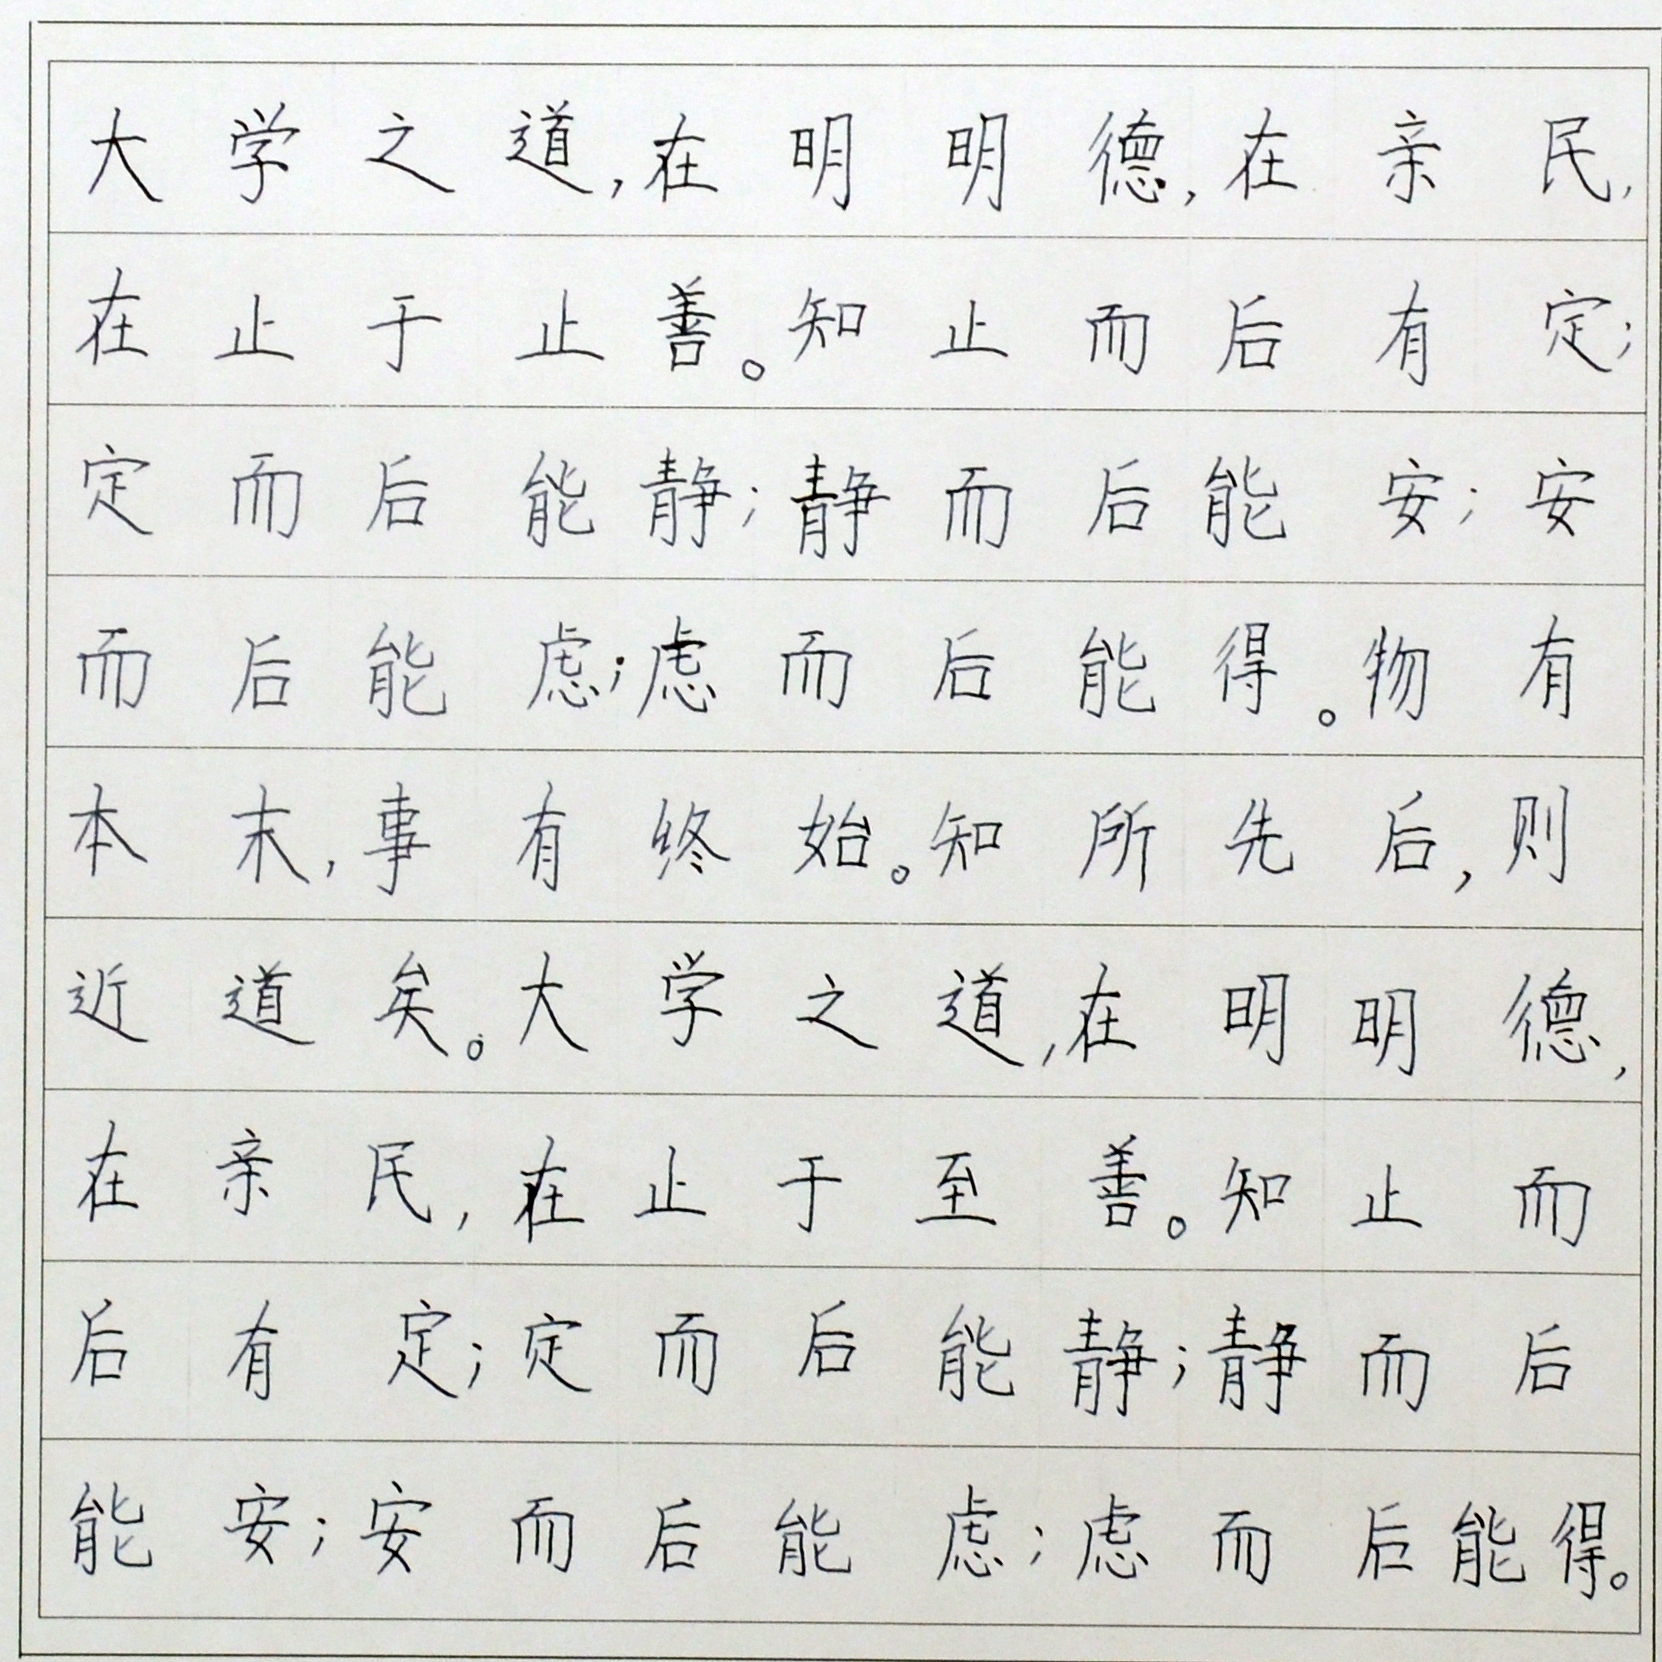 大学之道,在明明德,在亲民,
在止于止善。知止而后有定;
定而后能静;静而后能安;安
而后能虑;虑而后能得。物有
本末,事有终始。知所先后,则
近道矣。大学之道,在明明德,
在亲民,在止于至善。知止而
后有定;定而后能静;静而后
能安;安而后能虑;虑而后能得。